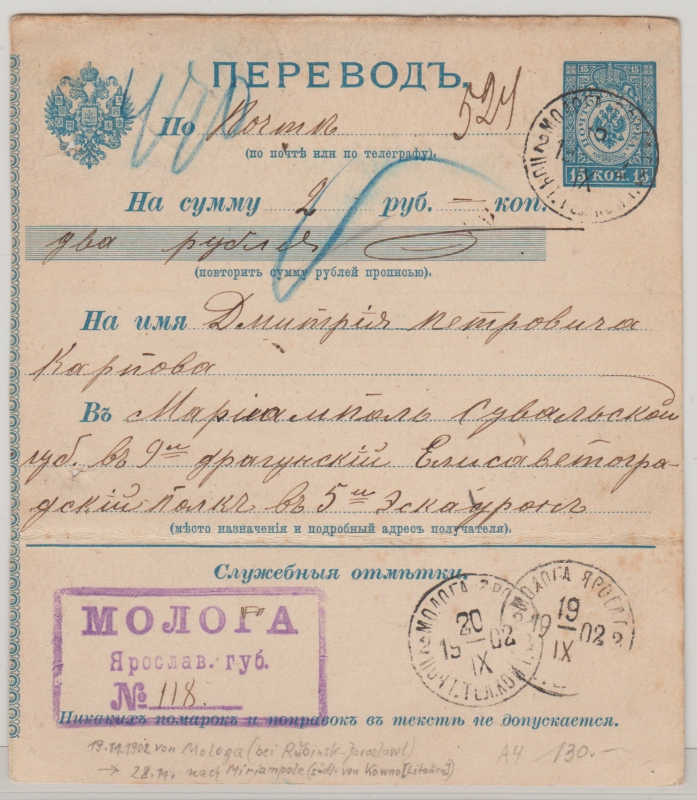 ПЕРЕВОДЪ.
По Почтѣ 524
(по почтѣ или по телеграфу).
15 КОП. 15
На сумму 2 руб. — коп.
два рубля
(повторить сумму рублей прописью).
На имя Дмитрія Петровича
Карпова
Въ Маріамполь Сувальской
губ. въ 9й драгунскій Елисаветогра-
дскій полкъ въ 5й Эскадронъ
(мѣсто назначенія и подробный адресъ получателя).
Служебныя отмѣтки.
МОЛОГА ЯРОСЛ
20
19 02
IX
МОЛОГА ЯРОСЛ
19
19 02
IX
МОЛОГА
Ярослав. губ.
№ 118.
Никакихъ помарокъ и поправокъ въ текстѣ не допускается.
19.11.1902 von Mologa (bei Rübinsk-Jaroslawl)
→ 28.11. nach Mirjampole (südl. von Kowno [Litauen])
A4 130.-